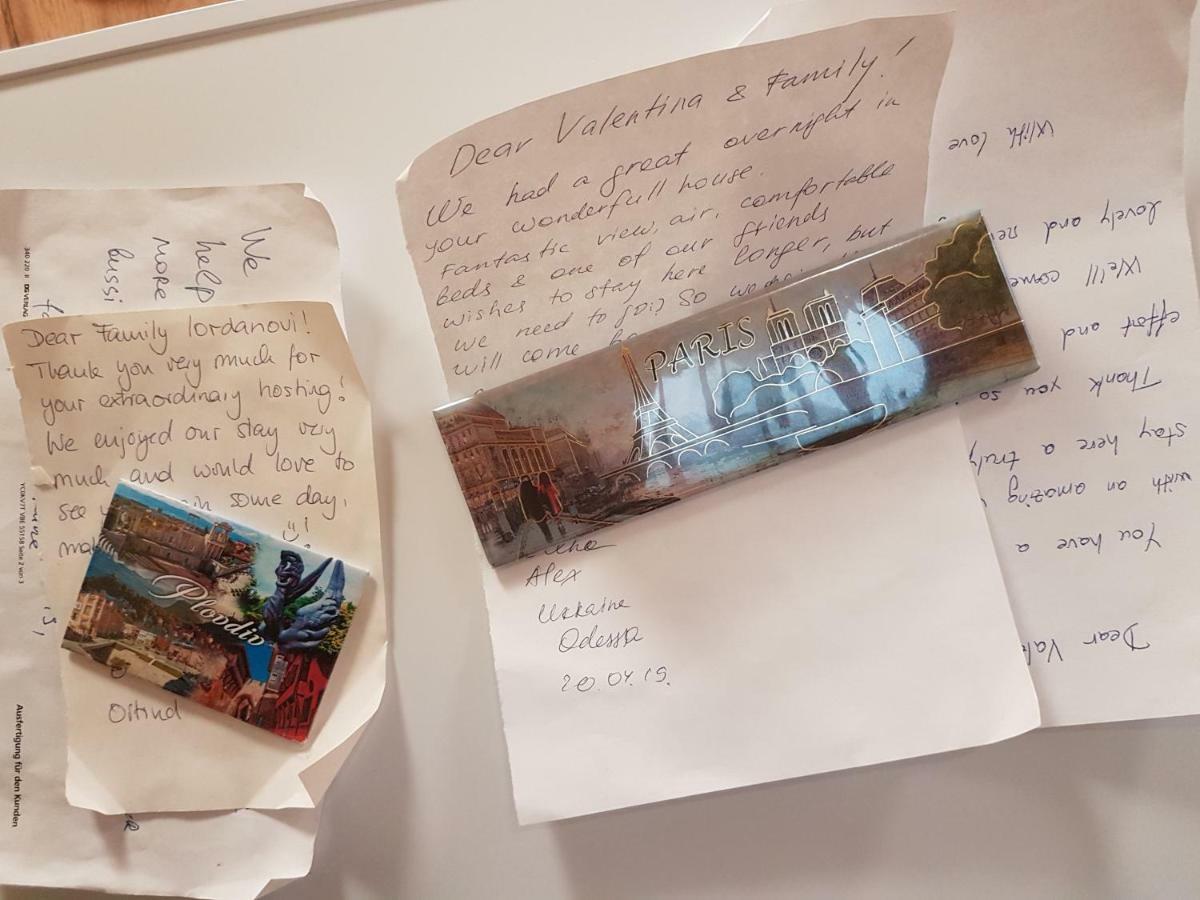 Dear Valentina & Family!
We had a great overnight in
your wonderfull house.
Fantastic view, air, comfortable
beds & one of our friends
wishes to stay here longer, but
we need to go:) So we
will come
Alex
Ukraine
Odessa
20.04.19.
PARIS
Dear Family Iordanovi!
Thank you very much for
your extraordinary hosting!
We enjoyed our stay very
much and would love to
see in some day,
Plovdiv
We
help
more
bussi
340 220 II DG VERLAG
Ausfertigung für den Kunden
Dear Val
You have a
with an amazing
stay here a truly
Thank you so
effort and
We'll come
lovely and
With love